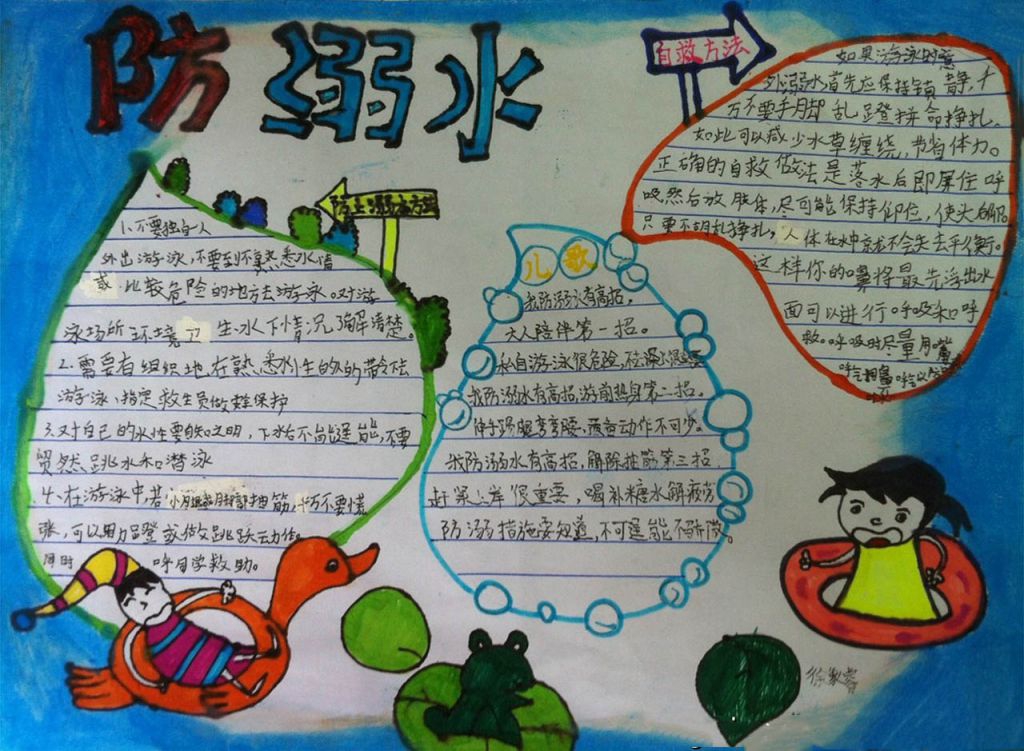 防溺水
自救方法
如果游泳时意
外溺水首先应保持镇静,千
万不要手脚乱蹬拼命挣扎。
如此可以减少水草缠绕,节省体力。
正确的自救做法是落水后即屏住呼
吸,然后放肢体,尽可能保持仰位,使头后仰。
只要不胡乱挣扎,人体在水中就不会失去平衡。
这样你的嘴将最先浮出水
面可以进行呼吸和呼
救。呼吸时尽量用嘴
防止溺水方法
1.不要独自一人
外出游泳,不要到不熟悉水情
或比较危险的地方去游泳。对游
泳场所环境了生水下情况了解清楚。
2.需要有组织地,在熟悉水性的人的带令下去
游泳,指定救生员做安全保护
3.对自己的水性要自知之明,下水后不能逞能,不要
贸然跳水和潜泳
4.在游泳中若小腿或脚部抽筋,千万不要慌
张,可以用力蹬或做跳跃动作。
同时 呼同学救助。
儿歌
我防溺水有高招,
大人陪伴第一招。
私自游泳很危险,
我防溺水有高招,游前热身第二招。
伸伸腿弯弯腰,预备动作不可少。
我防溺水有高招,解除抽筋第三招,
赶紧上岸很重要,喝补糖水解疲劳
防溺措施要知道,不可逞能不骄傲。
徐